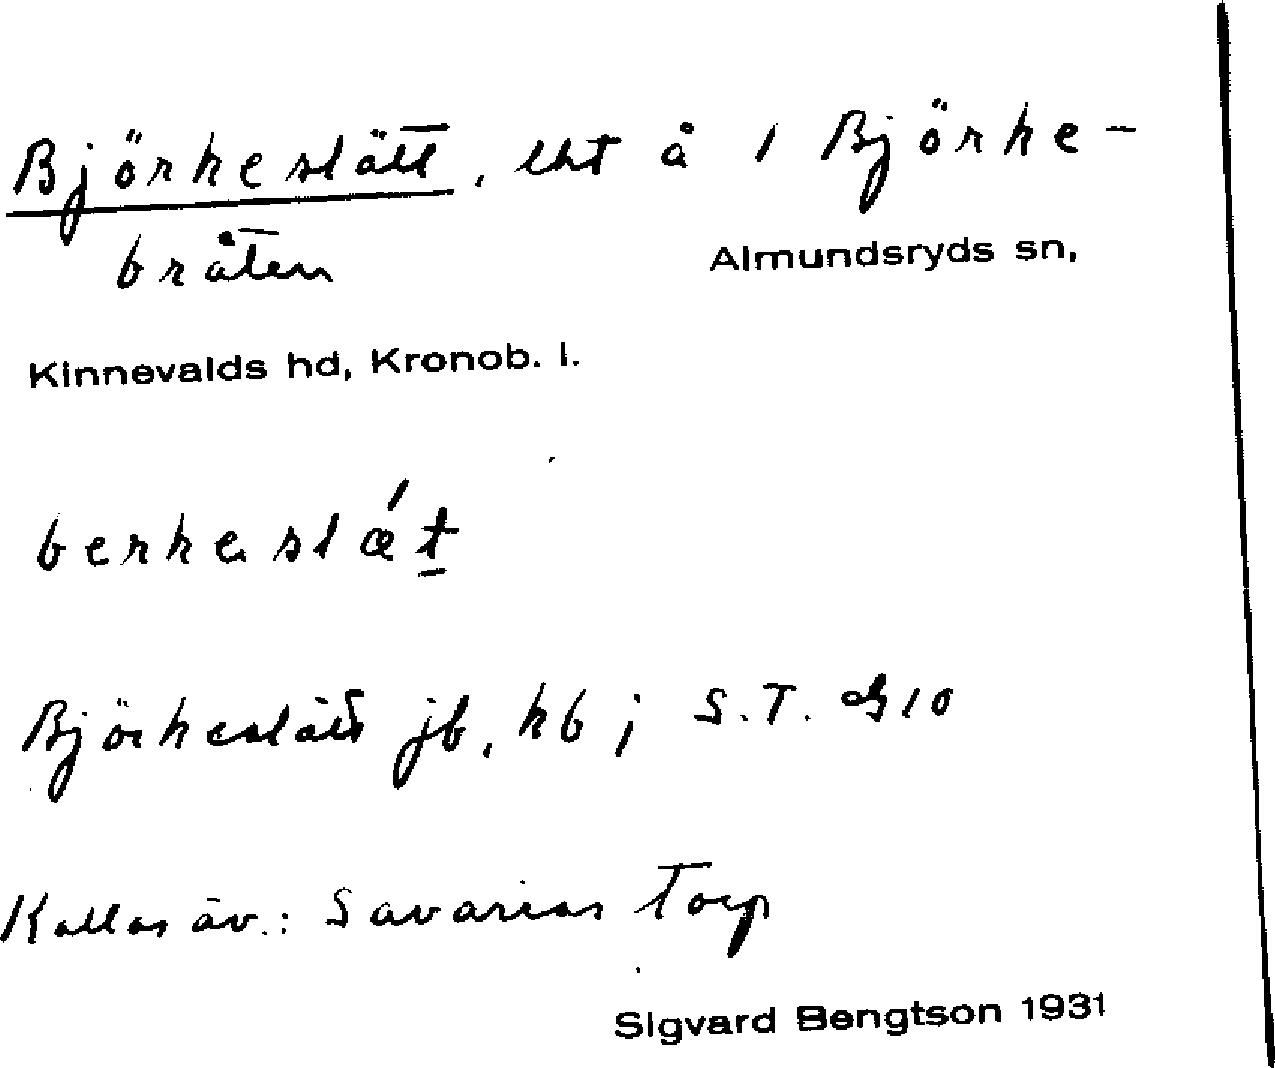 Björkeslätt, lht å 1 Björke-
bråten
Almundsryds sn,
Kinnevalds hd, Kronob. l.
berkeslǽt
Björkeslätt jb, hb; S.T. 10
Kallas äv.: Savarias Torp
Sigvard Bengtson 1931